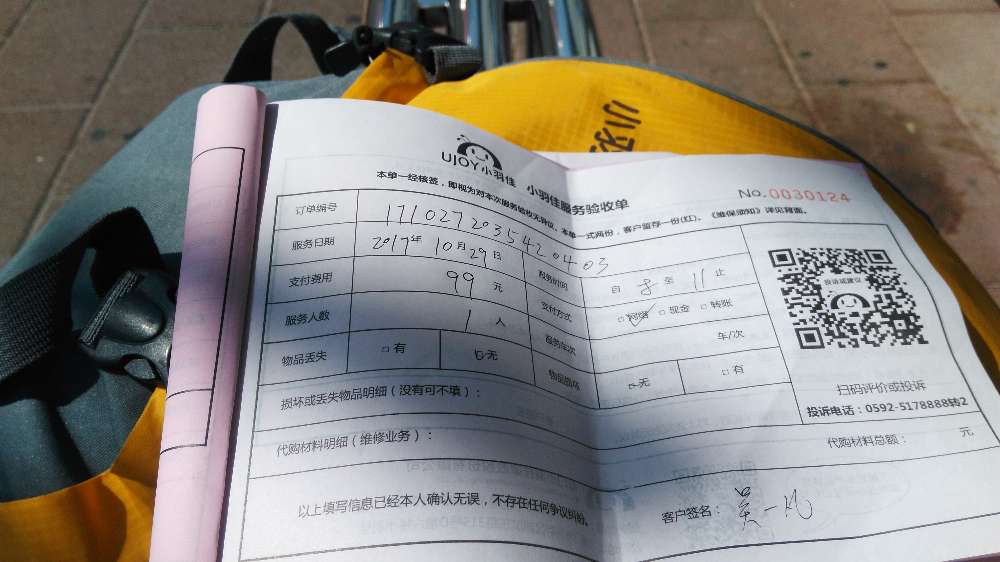 UJOY小羽佳 小羽佳服务验收单
NO.0030124
本单一经核签，即视为对本次服务验收无异议。本单一式两份，客户留存一份(红)。《维保须知》详见背面。
订单编号 17102720354420403
服务日期 2017年 10月29日 服务时间 自 8 至 11 止
支付费用 99 元 支付方式 □网络 □现金 □转账
服务人数 1 人 服务车次 车/次
物品丢失 □有 □无 物品损坏 □无 □有
投诉或建议
扫码评价或投诉
投诉电话：0592-5178888转2
损坏或丢失物品明细（没有可不填）：
代购材料明细（维修业务）： 代购材料总额： 元
以上填写信息已经本人确认无误，不存在任何争议纠纷。 客户签名： 吴一凡